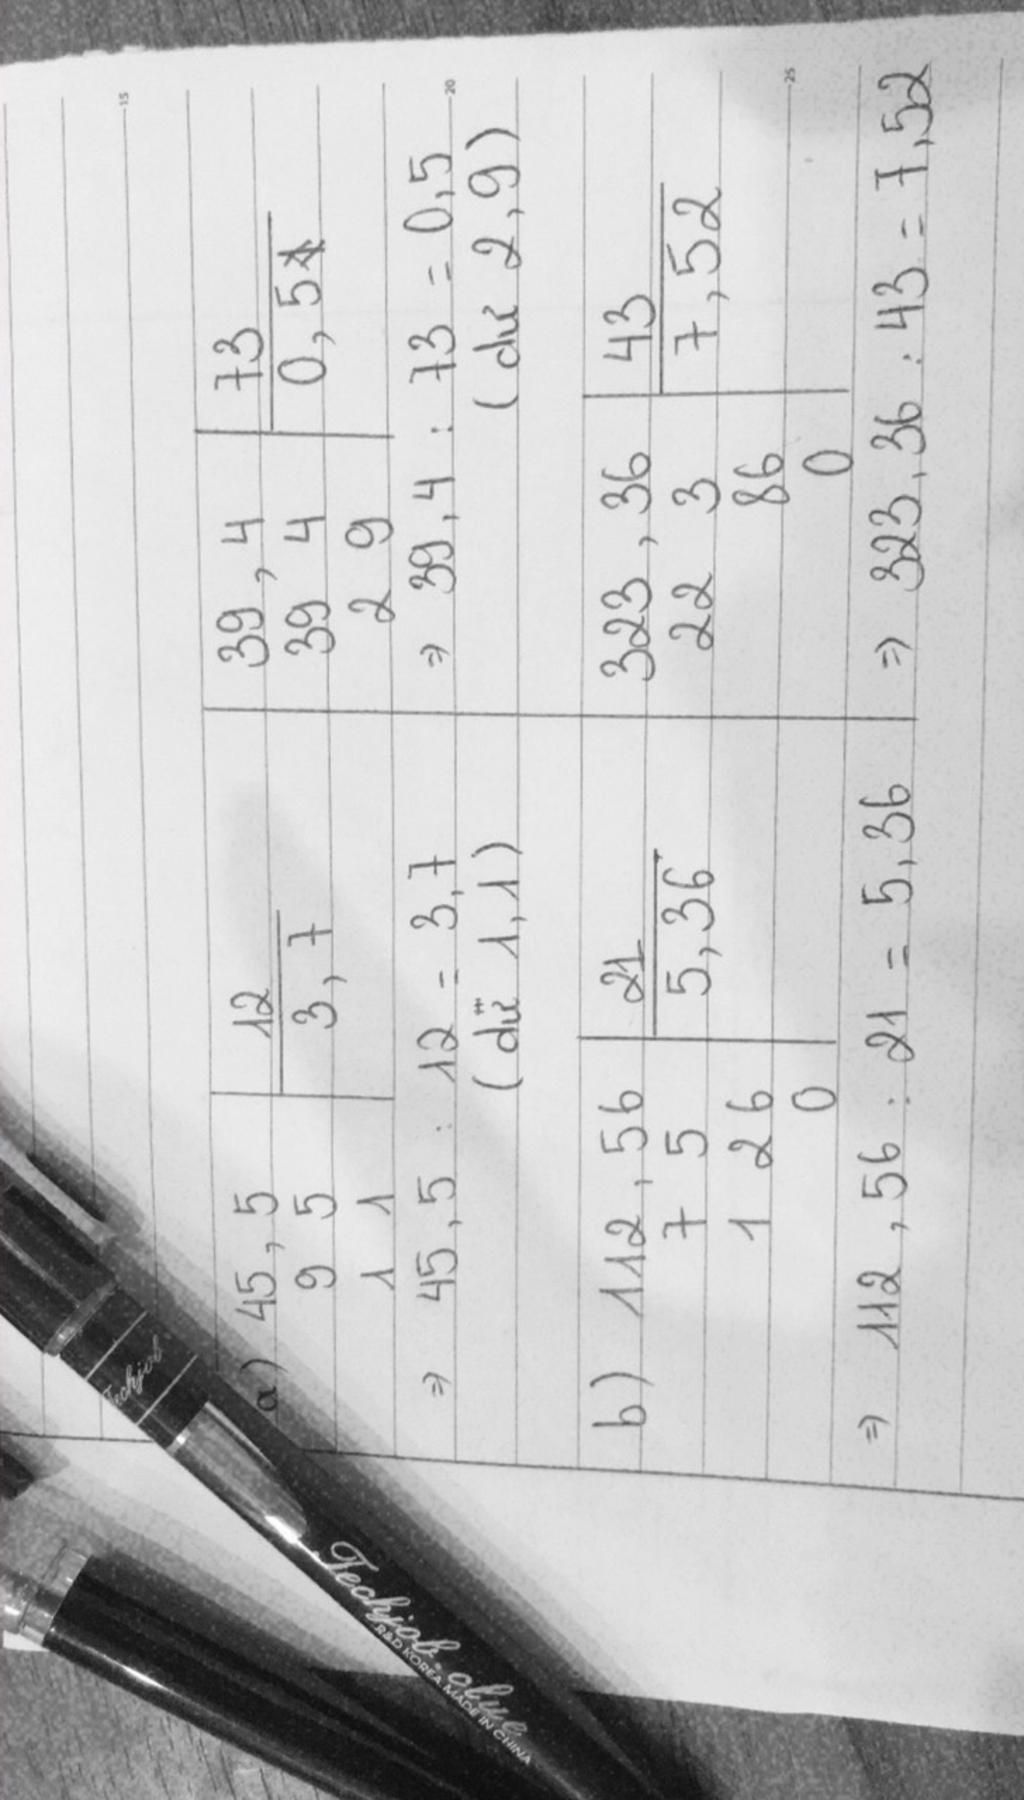 a) 45,5 12 39,4 73
9 5 3,7 39 4 0,5
1 1 2 9
⇒ 45,5 : 12 = 3,7 ⇒ 39,4 : 73 = 0,5
(dư 1,1) (dư 2,9)
b) 112,56 21 323,36 43
7 5 5,36 22 3 7,52
1 26 86
0 0
⇒ 112,56 : 21 = 5,36 ⇒ 323,36 : 43 = 7,52
15
20
25
Techjob
Techjob
R&D KOREA MADE IN CHINA